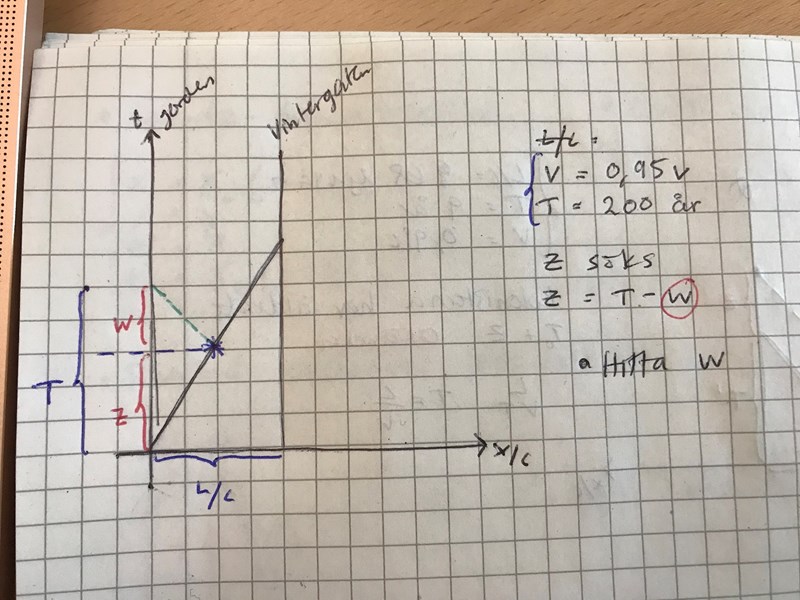 t
jorden
Vintergatan
W
T
Z
L/c
x/c
t/c =
V = 0,95 v
T = 200 år
Z söks
Z = T - W
Hitta W